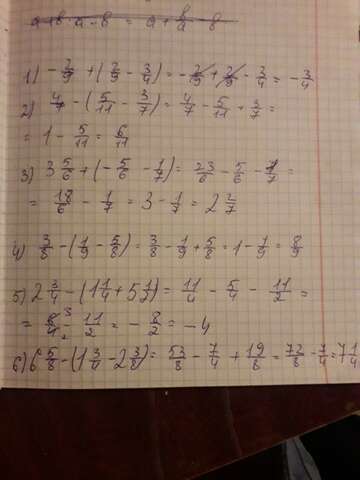 a+b · a - b = a + b/a - b
1) -2/9 + (2/9 - 3/4) = -2/9 + 2/9 - 3/4 = -3/4
2) 4/7 - (5/11 - 3/7) = 4/7 - 5/11 + 3/7 =
= 1 - 5/11 = 6/11
3) 3 5/6 + (-5/6 - 1/7) = 23/6 - 5/6 - 1/7 =
= 18/6 - 1/7 = 3 - 1/7 = 2 2/7
4) 3/8 - (1/9 - 5/8) = 3/8 - 1/9 + 5/8 = 1 - 1/9 = 8/9
5) 2 3/4 - (1 1/4 + 5 1/2) = 11/4 - 5/4 - 11/2 =
= 6/4 3/2 - 11/2 = -8/2 = -4
6) 6 5/8 - (1 3/4 - 2 3/8) = 53/8 - 7/4 + 19/8 = 72/8 - 7/4 = 7 1/4